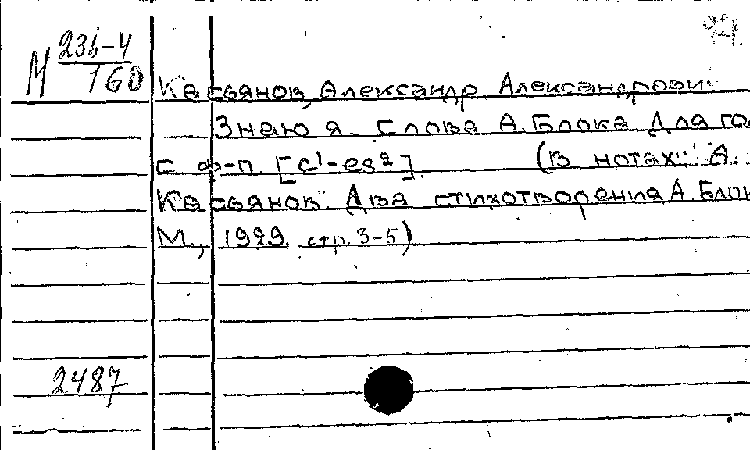 М 236-4
160
Касьянов, Александр Александрович
Знаю я. Слова А. Блока Для го
с ф-п. [c¹-es²]. (В нотах: А.
Касьянов. Два стихотворения А. Блок
М., 1929. стр. 3-5)
2487